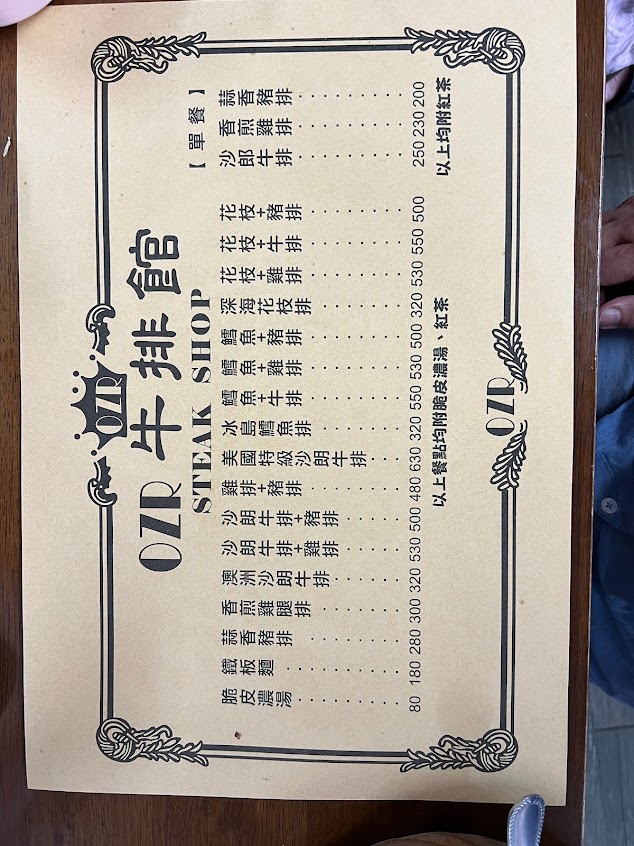 OZR
OZR 牛排館
STEAK SHOP
脆皮濃湯 . . . . . . . . . 80
鐵板麵 . . . . . . . . . 180
蒜香豬排 . . . . . . . . . 280
香煎雞腿排 . . . . . . . . 300
澳洲沙朗牛排 . . . . . . 320
沙朗牛排+雞排 . . . . . . 530
沙朗牛排+豬排 . . . . . . 500
雞排+豬排 . . . . . . . . 480
美國特級沙朗牛排 . . . . 630
冰島鱈魚排 . . . . . . . . 320
鱈魚+牛排 . . . . . . . . 550
鱈魚+雞排 . . . . . . . . 530
鱈魚+豬排 . . . . . . . . 500
深海花枝排 . . . . . . . . 320
花枝+雞排 . . . . . . . . 530
花枝+牛排 . . . . . . . . 550
花枝+豬排 . . . . . . . . 500
以上餐點均附脆皮濃湯、紅茶
【單餐】
沙郎牛排 . . . . . . . . . 250
香煎雞排 . . . . . . . . . 230
蒜香豬排 . . . . . . . . . 200
以上均附紅茶
OZR